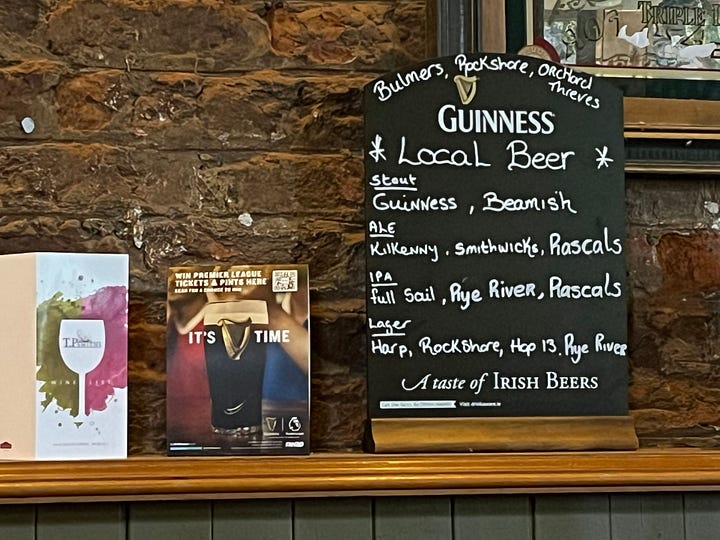 TRIPLE
Bulmers, Rockshore, ORCHARD
Thieves
GUINNESS
* Local Beer *
Stout
Guinness, Beamish
ALE
Kilkenny, Smithwicks, Rascals
IPA
full Sail, Rye River, Rascals
Lager
Harp, RockShore, Hop 13, Rye River
A taste of IRISH BEERS
WIN PREMIER LEAGUE
TICKETS & PINTS HERE
SCAN FOR A CHANCE TO WIN
IT'S TIME
WINE LIST